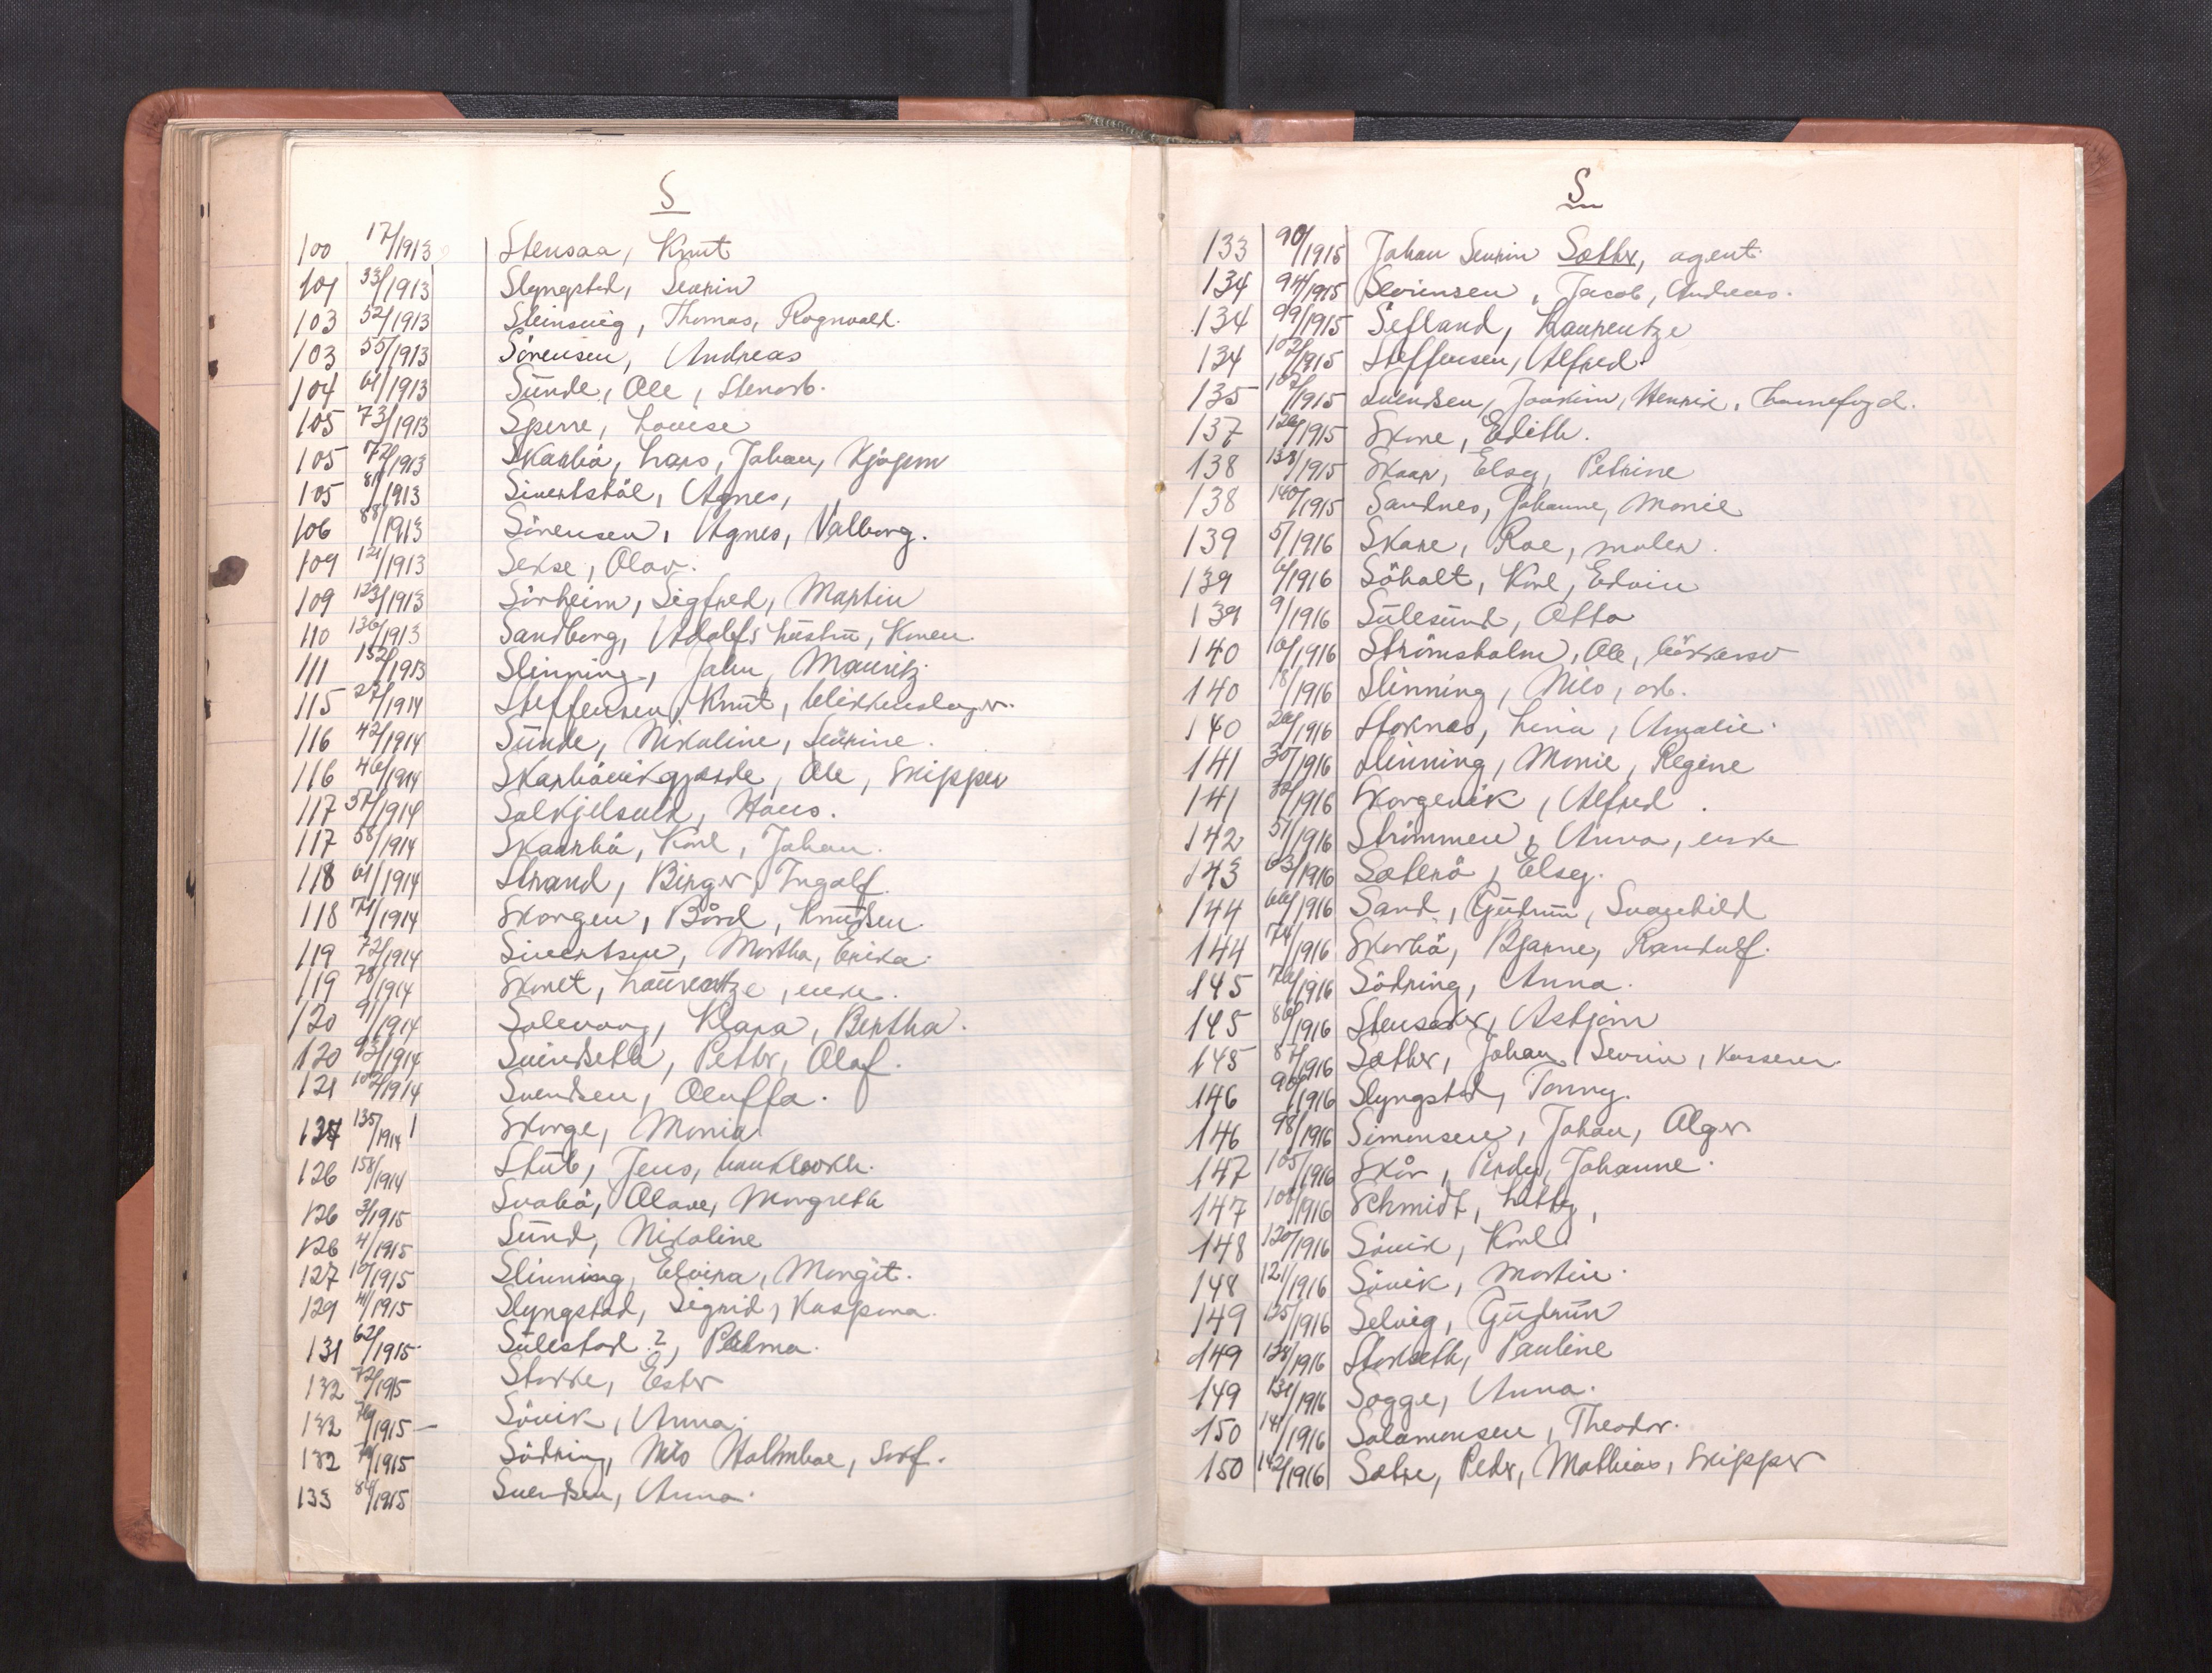 S
100 17/1913 Stensaa, Knut
101 33/1913 Slyngstad, Severin
103 52/1913 Steinsvig, Thomas, Rognvald.
103 55/1913 Sörensen, Andreas
104 61/1913 Sunde, Ole, Stenarb.
105 73/1913 Sperre, Lovise
105 72/1913 Skarbö, Lars, Johan,
105 81/1913 Sivertstöl, Agnes,
106 88/1913 Sörensen, Agnes, Valborg.
109 121/1913 Sekse, Olav.
109 123/1913 Sörheim, Sigfred, Martin
110 136/1913 Sandborg, Adolfs hustru, Karen.
111 152/1913 Slinning, John, Mauritz
115 27/1914 Steffensen, Knut, blikkenslager.
116 42/1914 Sunde, Nikoline, Severine.
116 46/1914 Skarbövikgjærde, Ole, Skipper
117 57/1914 Solkjelsvik, Hans.
117 58/1914 Skaarbö, Karl, Johan.
118 61/1914 Strand, Birger, Ingolf.
118 71/1914 Skorgen, Bård, Knudsen.
119 72/1914 Sivertsen, Martha, Erika.
119 78/1914 Skaret, Laurentze, enke.
120 91/1914 Solevaag, Klara, Bertha.
120 93/1914 Svindseth, Petter, Olaf.
121 102/1914 Svendsen, Oluffa.
127 135/1914 Skorge, Maria
126 158/1914 Stub, Jens,
126 3/1915 Svabö, Olave, Margreth
126 4/1915 Sund, Nikoline
127 10/1915 Slinning, Elvira, Margit.
129 41/1915 Slyngstad, Sigrid, Kaspara.
131 62/1915 Sulestad ?, Palma.
132 72/1915 Stokke, Ester
132 76/1915 – Sövik, Anna.
132 79/1915 Södring, Nils Holmboe, Sorf.
133 84/1915 Svendsen, Anna.
S
133 90/1915 Johan Severin Sæther, agent.
134 94/1915 Severinsen, Jacob, Andreas.
134 99/1915 Sefland, Laurentze
134 102/1915 Steffensen, Alfred.
135 107/1915 Svendsen, Joakim, Henrik, havnefogd.
137 126/1915 Skare, Edith.
138 138/1915 Skaar, Elsy, Petrine
138 140/1915 Sandnes, Johanne, Marie
139 5/1916 Skare, Roe, maler.
139 6/1916 Söholt, Karl, Edvin
139 9/1916 Sulesund, Otto
140 10/1916 Strömsholm, Ole, bökkersv
140 18/1916 Slinning, Nils, arb.
140 26/1916 Stoknes, Lina, Amalie.
141 30/1916 Slinning, Marie, Regine
141 32/1916 Skorgevik, Alfred.
142 51/1916 Strömmen, Anna, enke
143 63/1916 Sæterö, Elsy.
144 66/1916 Sand, Gudrun, Svanhild
144 74/1916 Skarbö, Bjarne, Randulf.
145 76/1916 Södring, Anna.
145 86/1916 Stensaker, Asbjørn
145 87/1916 Sæther, Johan, Severin, Kasserer
146 90/1916 Slyngstad, Tonny.
146 98/1916 Simonsen, Johan, Alger
147 105/1916 Skår, Perdy, Johanne.
147 108/1916 Schmidt, Letty,
148 120/1916 Sövik, Karl
148 121/1916 Sövik, Martin.
149 125/1916 Selvig, Gudrun
149 128/1916 Storseth, Pauline
149 131/1916 Sogge, Anna.
150 141/1916 Salamonsen, Theodor.
150 142/1916 Sætre, Peder, Mathias, Skipper